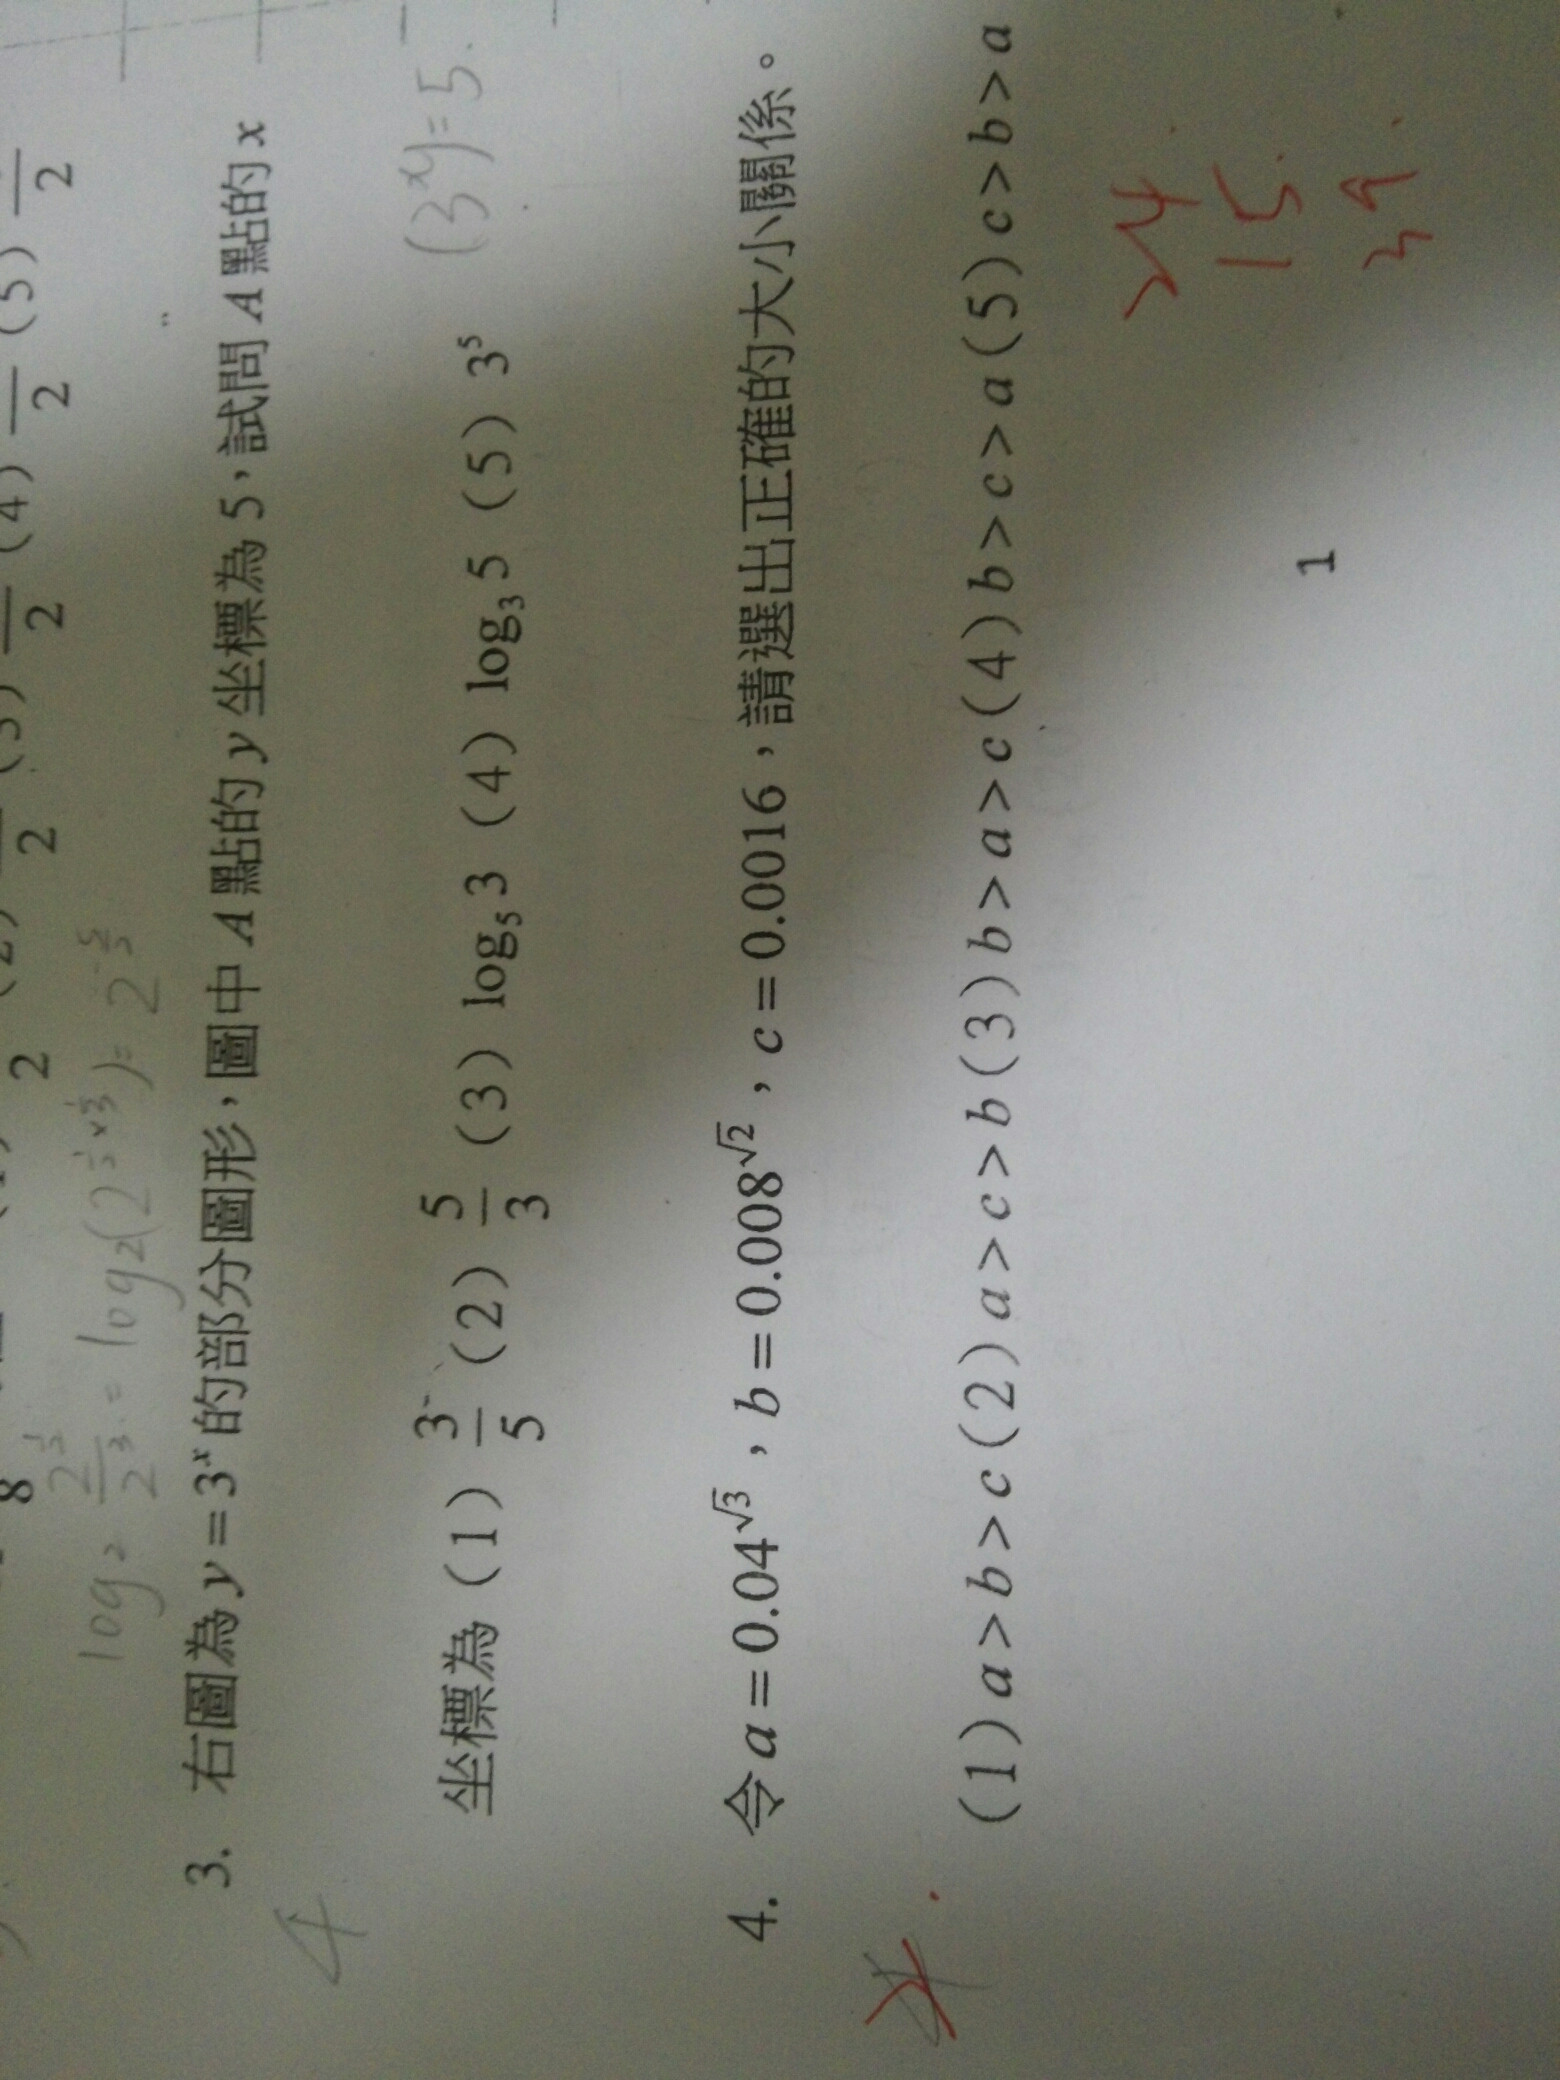 2 2 2 (4) 2 (5) 2
8
log₂ = log₂( ) = 2
3. 右圖為 y = 3ˣ 的部分圖形，圖中 A 點的 y 坐標為 5，試問 A 點的 x
4
坐標為（1）3/5（2）5/3（3）log₅3（4）log₃5（5）3⁵
(3ˣy=5.
4. 令 a = 0.04^√3，b = 0.008^√2，c = 0.0016，請選出正確的大小關係。
(1) a > b > c (2) a > c > b (3) b > a > c (4) b > c > a (5) c > b > a
1